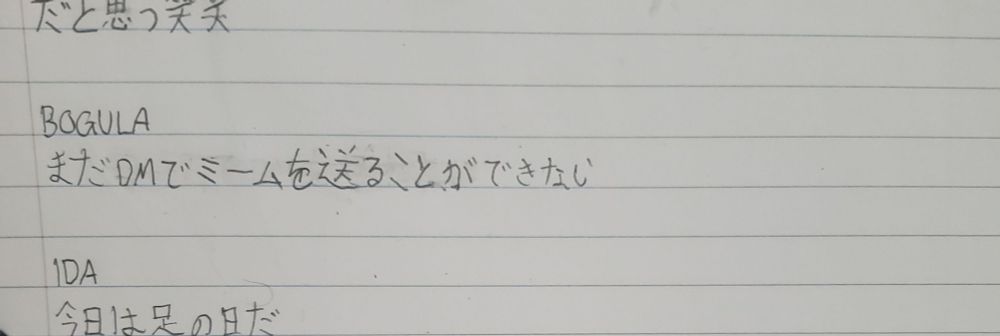 だと思う笑笑
BOGULA
まだDMでミームを送ることができない
IDA
今日は足の日だ